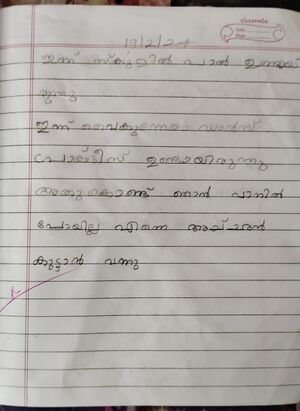 classmate
Date
Page
19/2/24
ഇന്ന് സ്കൂളിൽ പാൽ ഉണ്ടായി
രുന്നു
ഇന്ന് വൈകുന്നേരം ഡാൻസ്
പ്രാക്ടീസ് ഉണ്ടായിരുന്നു
അതുകൊണ്ട് ഞാൻ വാനിൽ
പോയില്ല എന്നെ അച്ഛൻ
കൂട്ടാൻ വന്നു